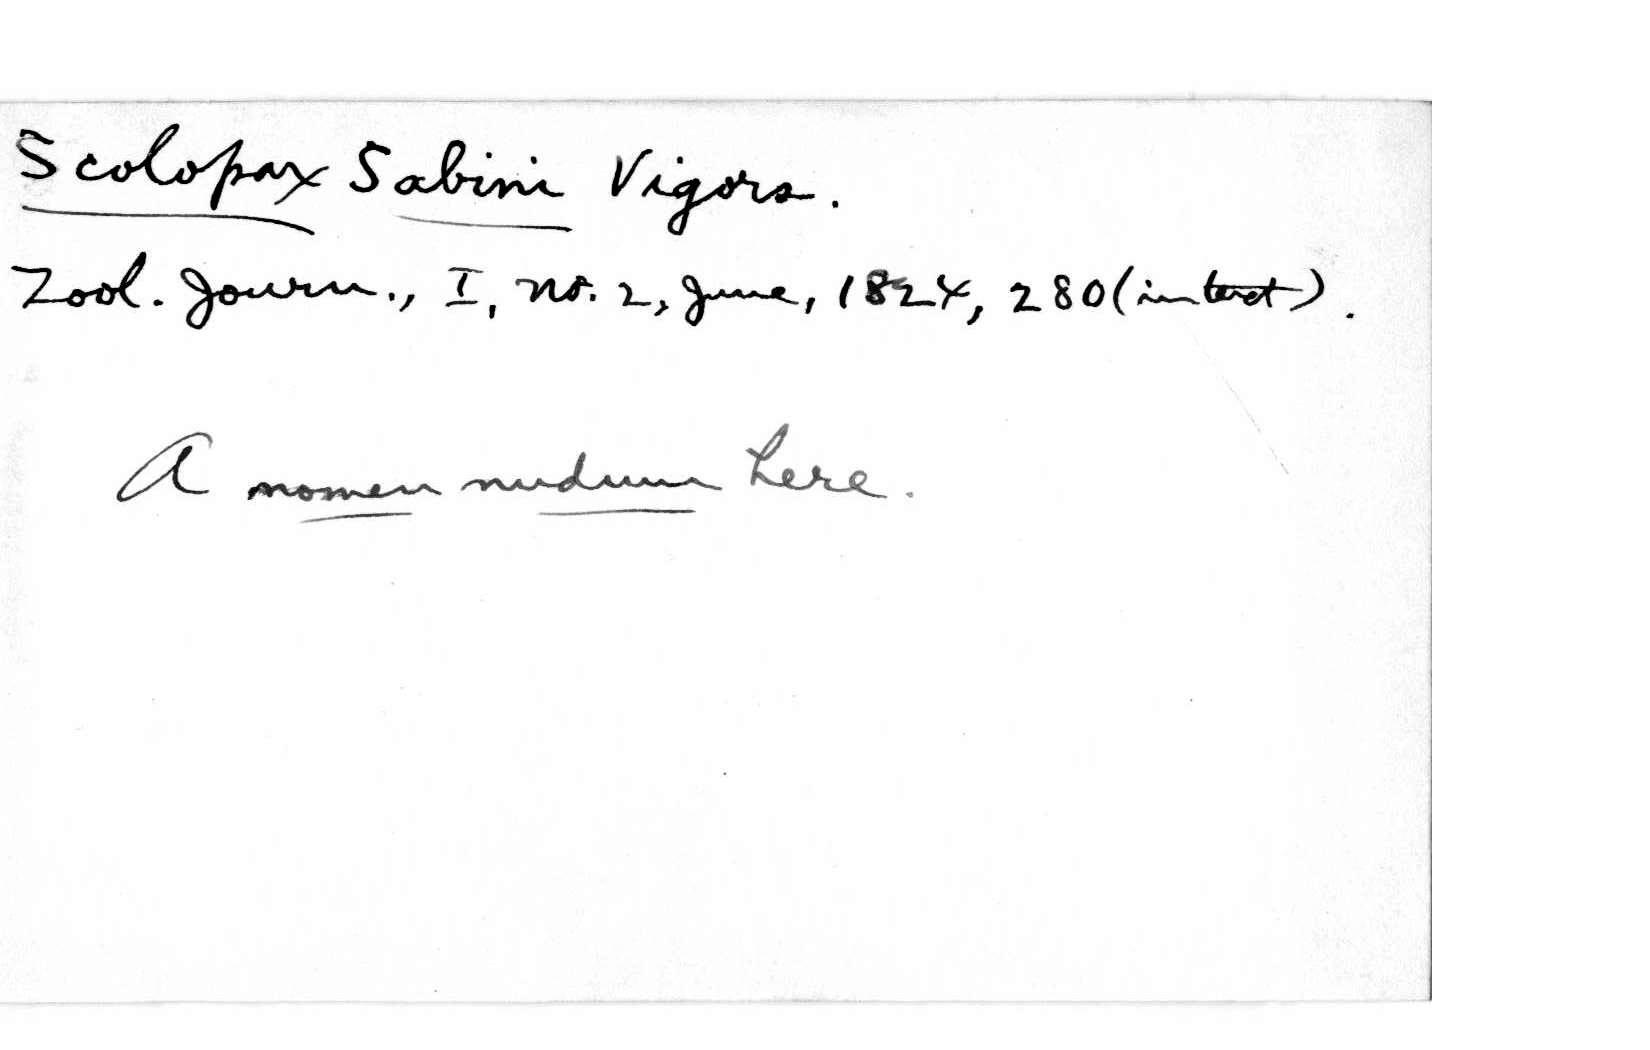 Scolopax Sabini Vigors.
Zool. Journ., I, no. 2, June, 1824, 280 (in text).
A nomen nudum here.